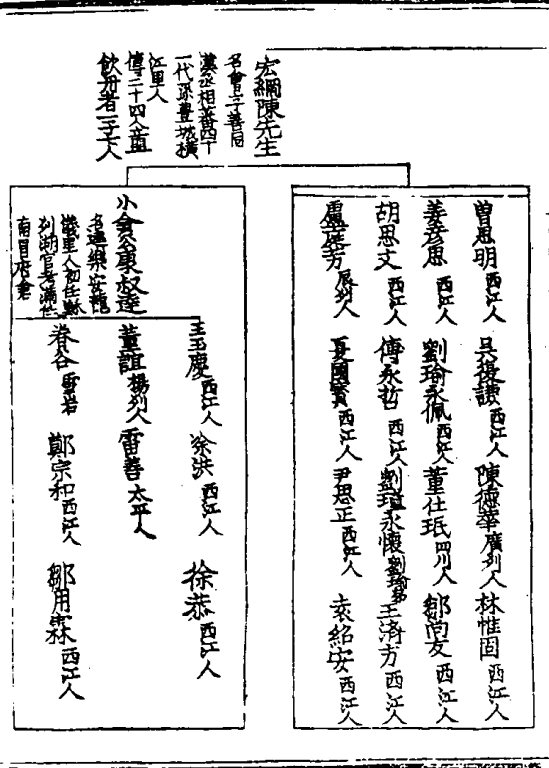 宏綱陳先生
名會字善同
漢丞相番四十
一代孫豊城橫
江里人
傳二十四人
飲丹者一十人
曾思明西江人
吳復謙西江人
陳德華廣列人
林惟固西江人
姜彥思西江人
劉瑜永佩西江人
董仕珉四川人
鄒尚友西江人
胡思文西江人
傅永哲西江人
劉瑄永懷劉瑜弟
王濟方西江人
盧 方辰列人
夏國賓西江人
尹思正西江人
袁紹安西江人
小 康叔逵
名逵樂安龍
義里人初任
列湖官考滿
南昌府倉
王玉慶西江人
徐洪西江人
徐恭西江人
董誼楊列人
雷善太平人
春谷雪岩
鄭宗和西江人
鄒用霖西江人